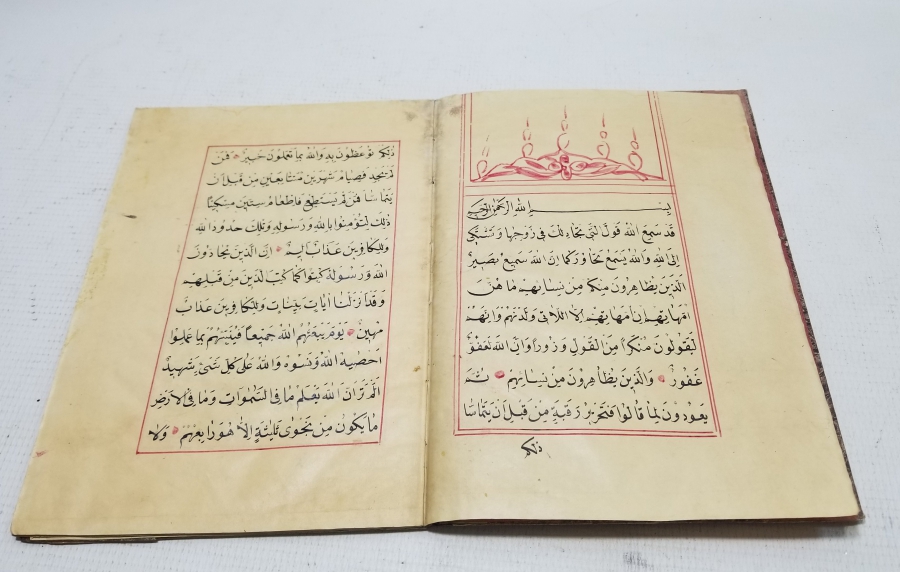 بسم الله الرحمن الرحيم
قد سمع الله قول التي تجادلك في زوجها وتشتكي
الى الله والله يسمع تحاوركما ان الله سميع بصير
الذين يظاهرون منكم من نسائهم ما هن
امهاتهم ان امهاتهم الا اللاتي ولدنهم وانهم
ليقولون منكرا من القول وزورا وان الله لعفو
غفور والذين يظاهرون من نسائهم ثم
يعودون لما قالوا فتحرير رقبة من قبل ان يتماسا
ذلكم
ذلكم توعظون به والله بما تعملون خبير فمن
لم يجد فصيام شهرين متتابعين من قبل ان
يتماسا فمن لم يستطع فاطعام ستين مسكينا
ذلك لتؤمنوا بالله ورسوله وتلك حدود الله
وللكافرين عذاب اليم ان الذين يحادون
الله ورسوله كبتوا كما كبت الذين من قبلهم
وقد انزلنا ايات بينات وللكافرين عذاب
مهين يوم يبعثهم الله جميعا فينبئهم بما عملوا
احصيه الله ونسوه والله على كل شئ شهيد
الم تر ان الله يعلم ما في السموات وما في الارض
ما يكون من نجوى ثلثة الا هو رابعهم ولا